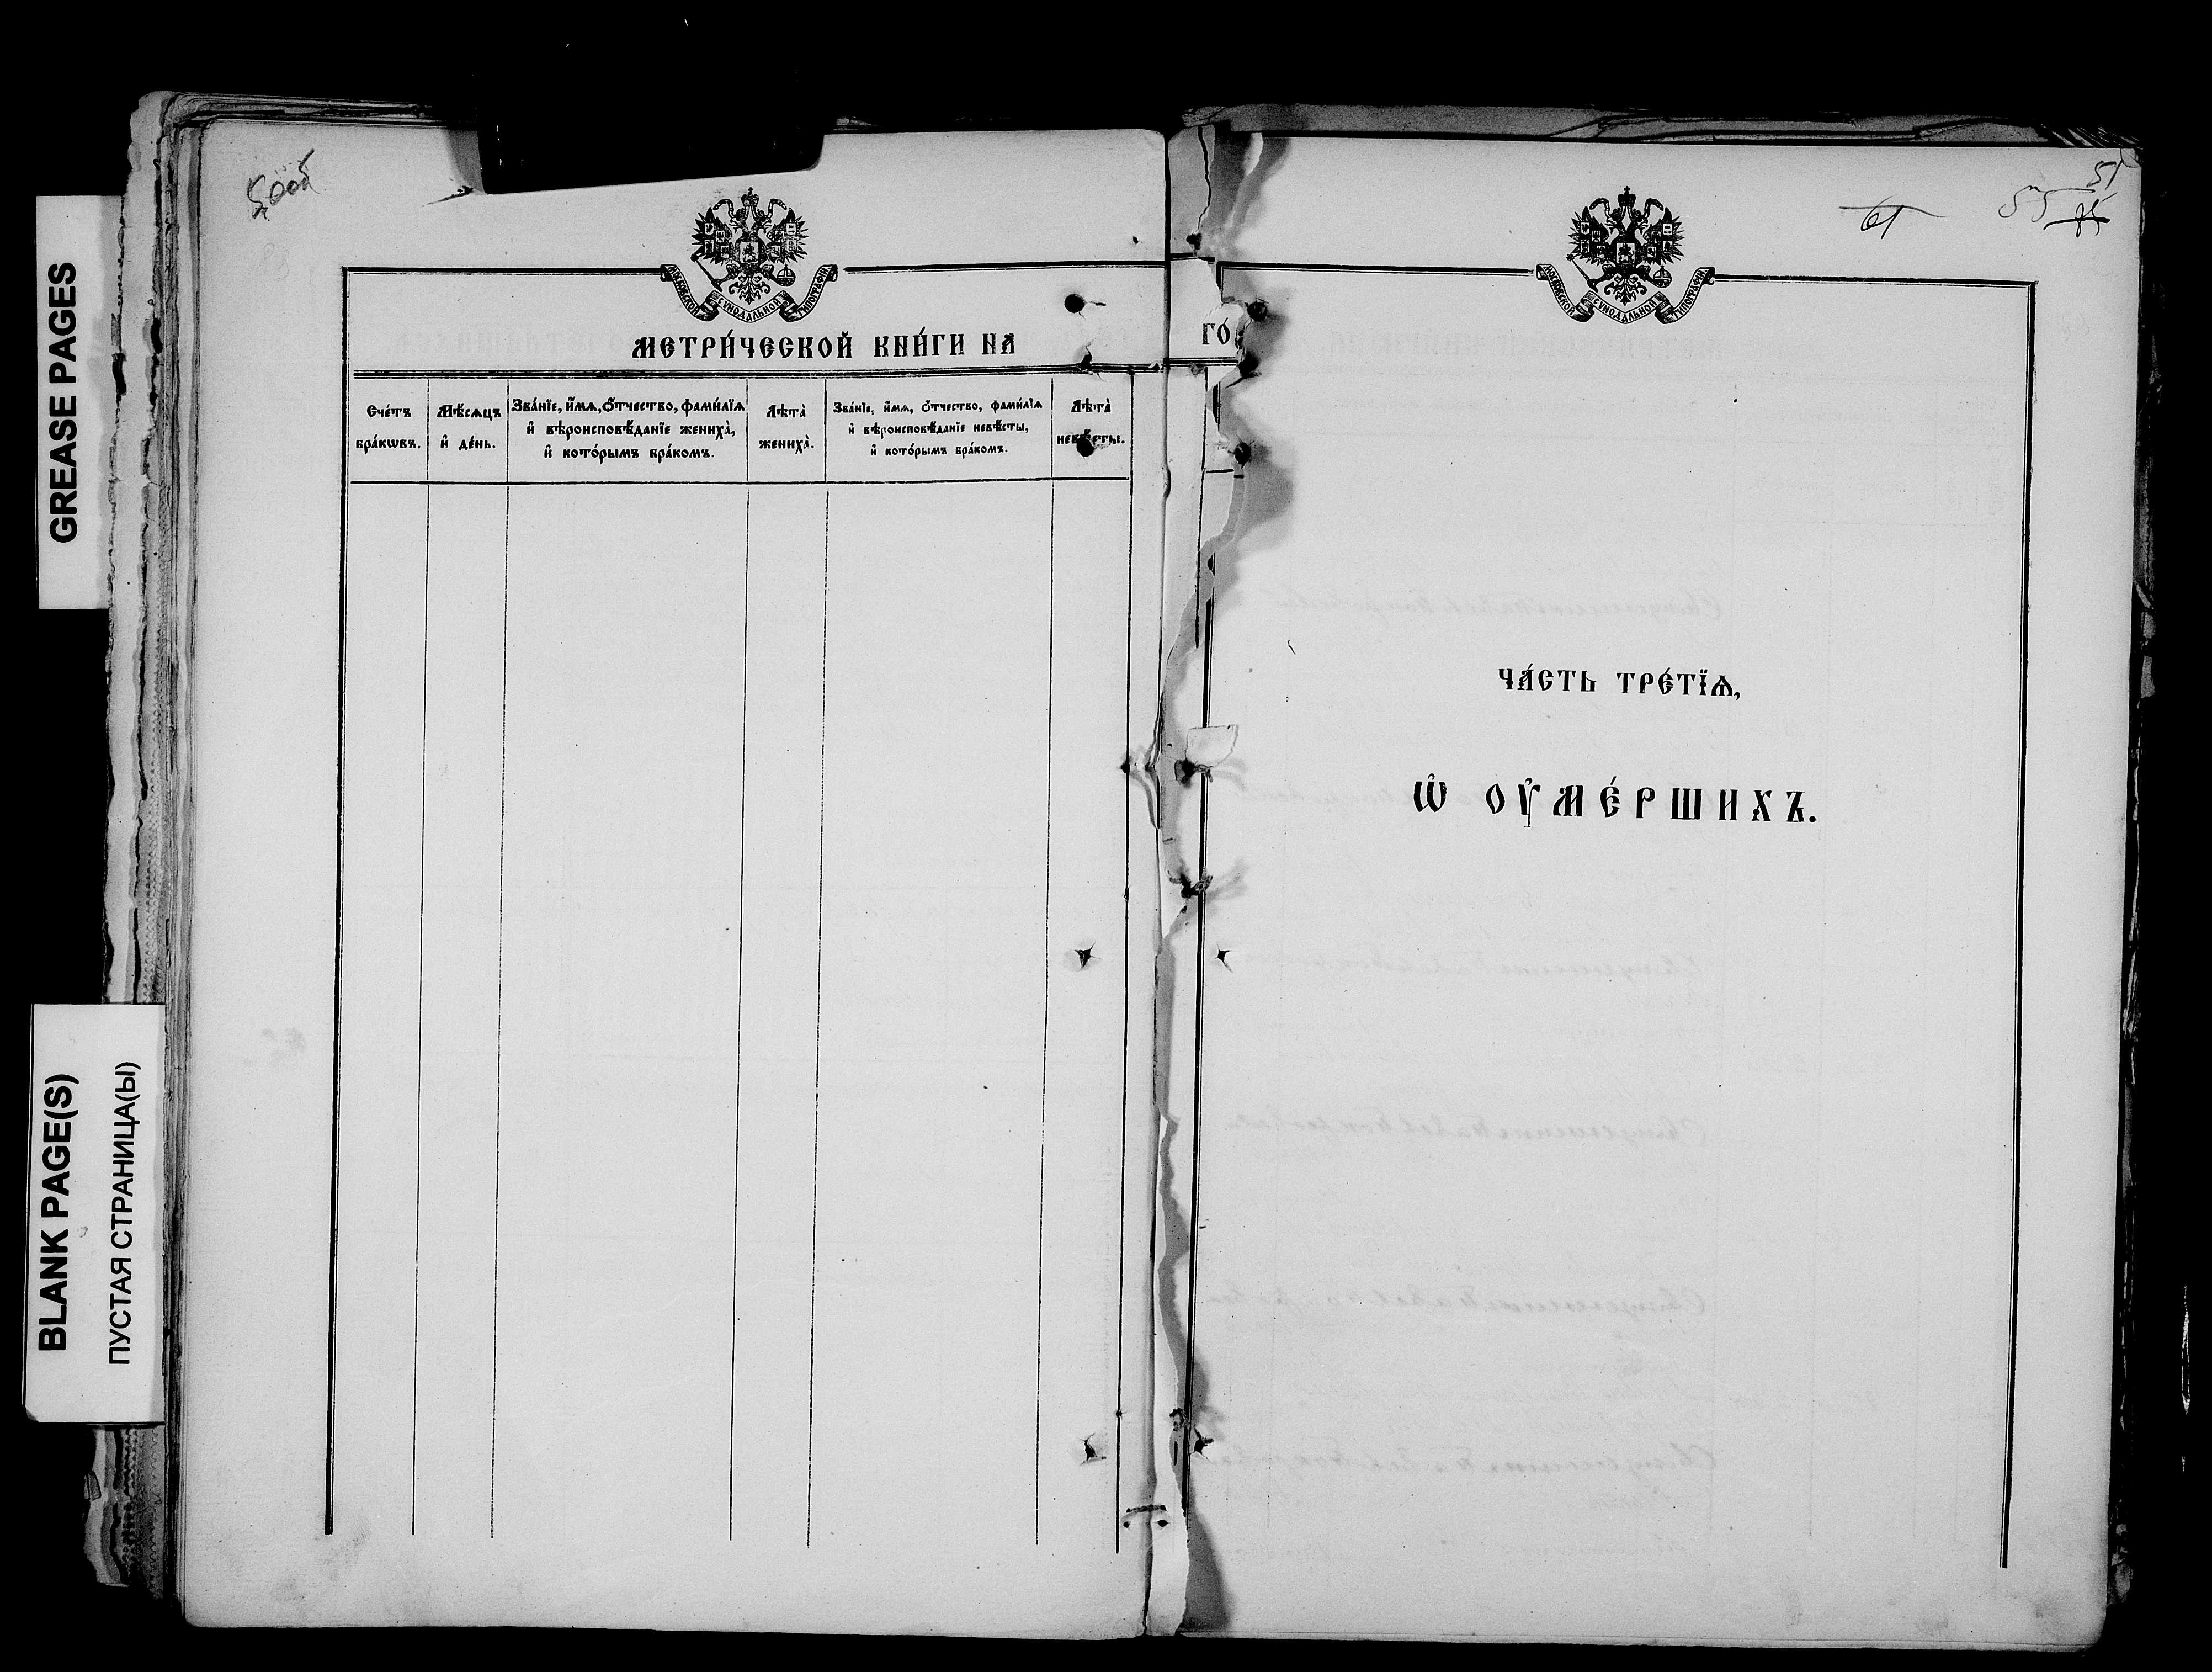 GREASE PAGES
BLANK PAGE(S)
ПУСТАЯ СТРАНИЦА(Ы)
50об
МОСКОВСКОЙ СѴНОДАЛЬНОЙ ТИПОГРАФІИ
МЕТРИ́ЧЕСКОЙ КНИ́ГИ НА
Сче́тъ бра́кѡвъ.
Мѣ́сѧцъ и҆ де́нь.
Зва́нїе, и҆́мѧ, ѻ҆́тчество, фами́лїѧ
и҆ вѣроисповѣ́данїе жениха̀,
и҆ кото́рымъ бра́комъ.
Лѣта̀ жениха̀.
Зва́нїе, и҆́мѧ, ѻ҆́тчество, фами́лїѧ
и҆ вѣроисповѣ́данїе невѣ́сты,
и҆ кото́рымъ бра́комъ.
Лѣта̀ невѣ́сты.
ГО́
51
61
55
МОСКОВСКОЙ СѴНОДАЛЬНОЙ ТИПОГРАФІИ
ЧА́СТЬ ТРЕ́ТЇѦ,
Ѡ҆ ОУ҆МЕ́РШИХЪ.